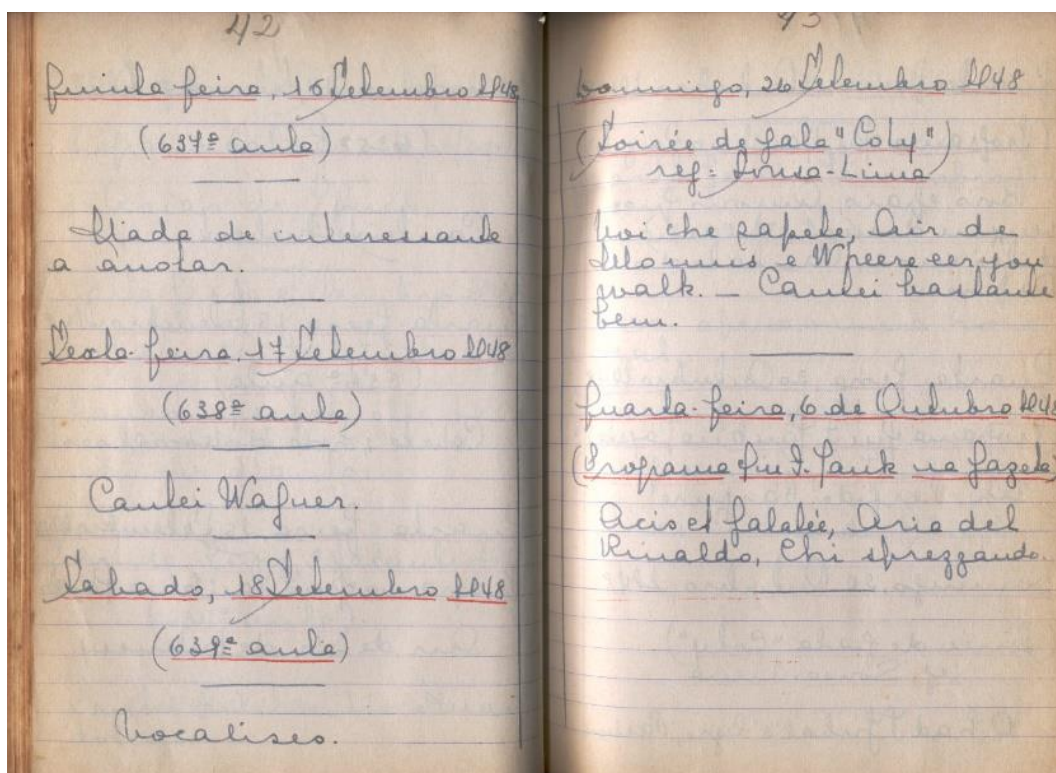 42
Quinta feira, 16 Setembro 1948
(637ª aula)
Nada de interessante
a anotar.
Sexta-feira, 17 Setembro 1948
(638ª aula)
Cantei Wagner.
Sabado, 18 Setembro 1948
(639ª aula)
Vocalises.
43
Domingo, 26 Setembro 1948
(Soirée de gala "Coty")
reg: Souza-Lima
Voi che sapete, Air de
e Wheere eer you
walk. — Cantei bastante
bem.
Quarta-feira, 6 de Outubro 1948
(Programa na Gazeta)
Acis et Galatée, Aria del
Rinaldo, Chi sprezzando.